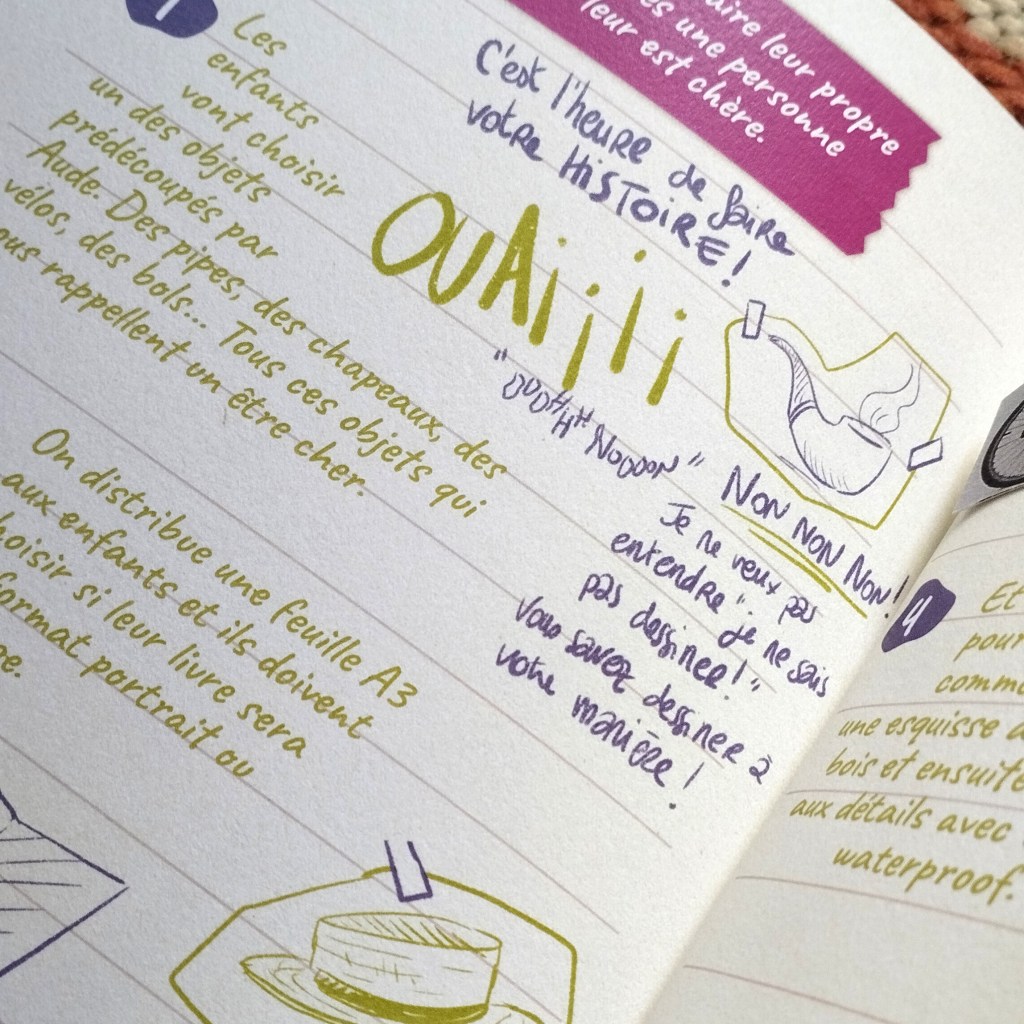 aire leur propre
es une personne
leur est chère.
1
Les
enfants
vont choisir
un des objets
prédécoupés par
Aude. Des pipes, des chapeaux, des
vélos, des bols... Tous ces objets qui
ous rappellent un être cher.
On distribue une feuille A3
aux enfants et ils doivent
hoisir si leur livre sera
format portrait ou
re.
C'est l'heure de faire
votre HISTOIRE !
OUAiiii
"OUOHHH NOOOON"
NON NON NON!
Je ne veux pas
entendre "je ne sais
pas dessiner!"
Vous savez dessiner à
votre manière !
4
Et
pour
comme
une esquisse a
bois et ensuite
aux détails avec
waterproof.